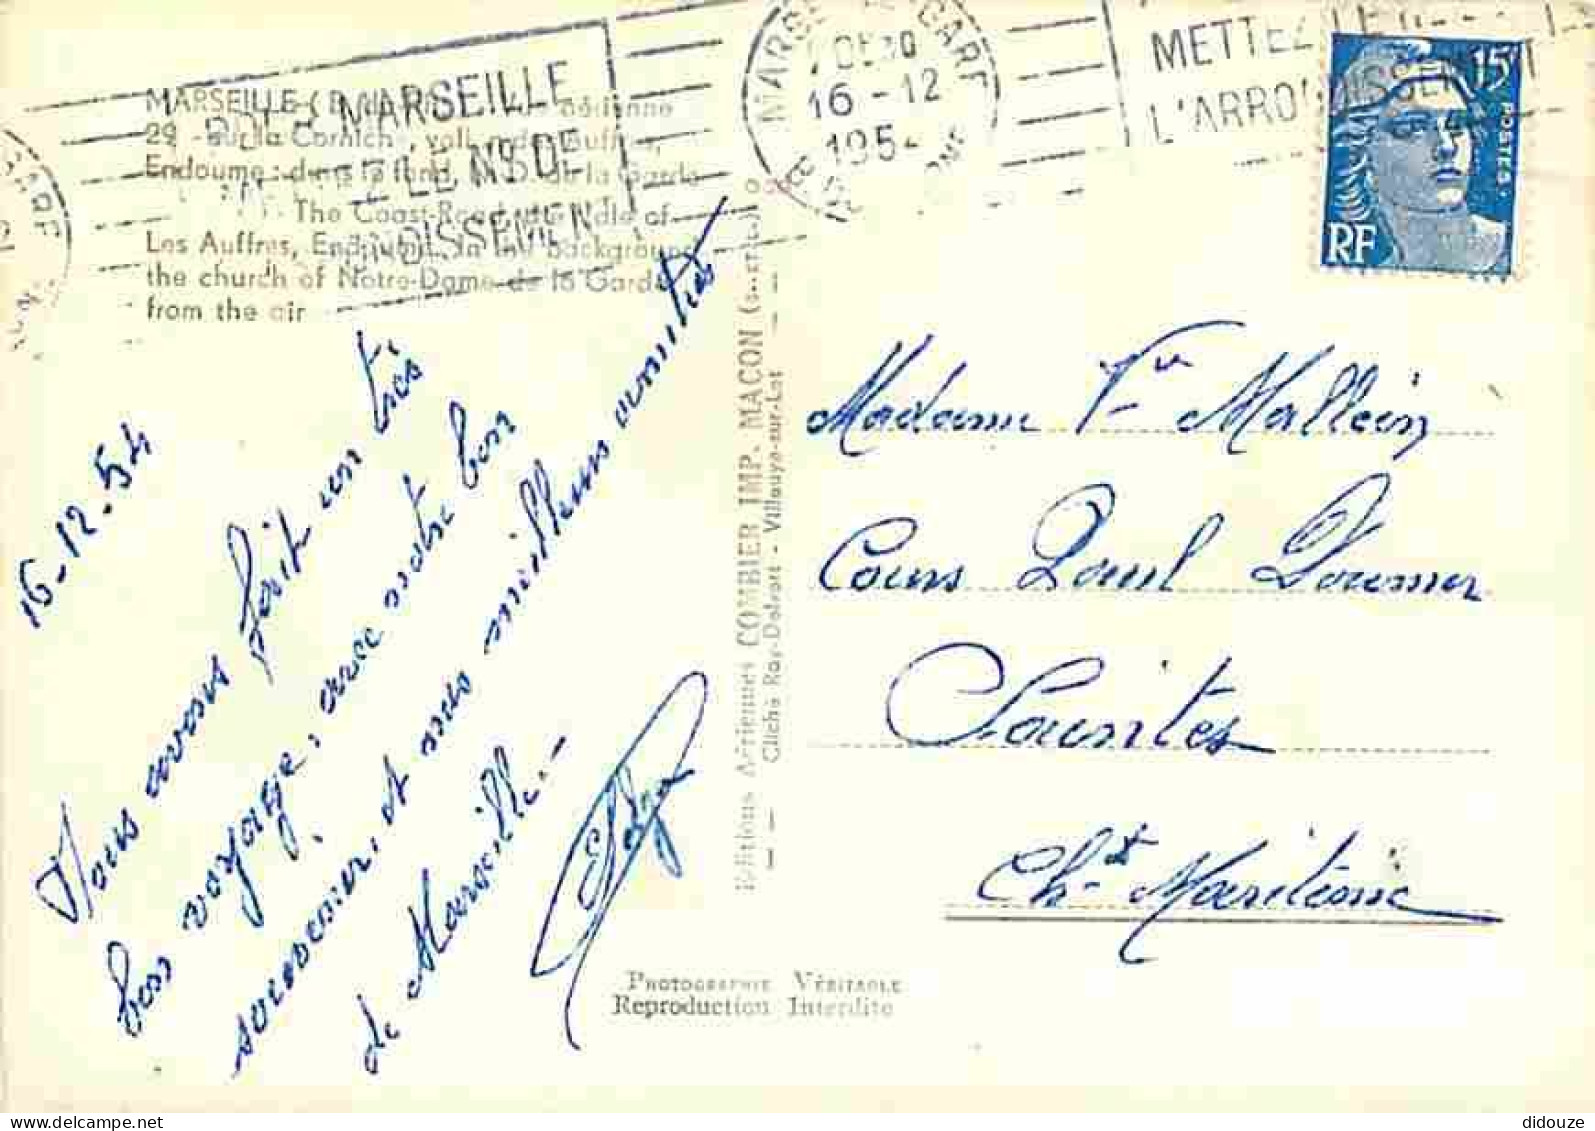 MARSEILLE GARE
16-12
1954
MARSEILLE
LE No DE
METTEZ LE
L'ARRONDISSEMENT
15F
POSTES
RF
MARSEILLE
29 - Sur la Corniche, vallon des Auffres,
Endoume ; dans le fond, N.-D. de la Garde
The Coast-Road, the Vale of
Les Auffres, Endoume. In the background
the church of Notre-Dame de la Garde
from the air
16-12-54
Nous avons fait un très
bon voyage, avec notre bon
souvenir, et mes meilleurs amitiés
de Marseille.-
Editions Aériennes COMBIER IMP. MACON (S.-et-L.)
Cliché Ray-Delvert - Villeuve-sur-Lot
Madame Vve Mallein
Cours Paul Doumer
Saintes
Chte Maritime
PHOTOGRAPHIE VÉRITABLE
Reproduction Interdite
didouze